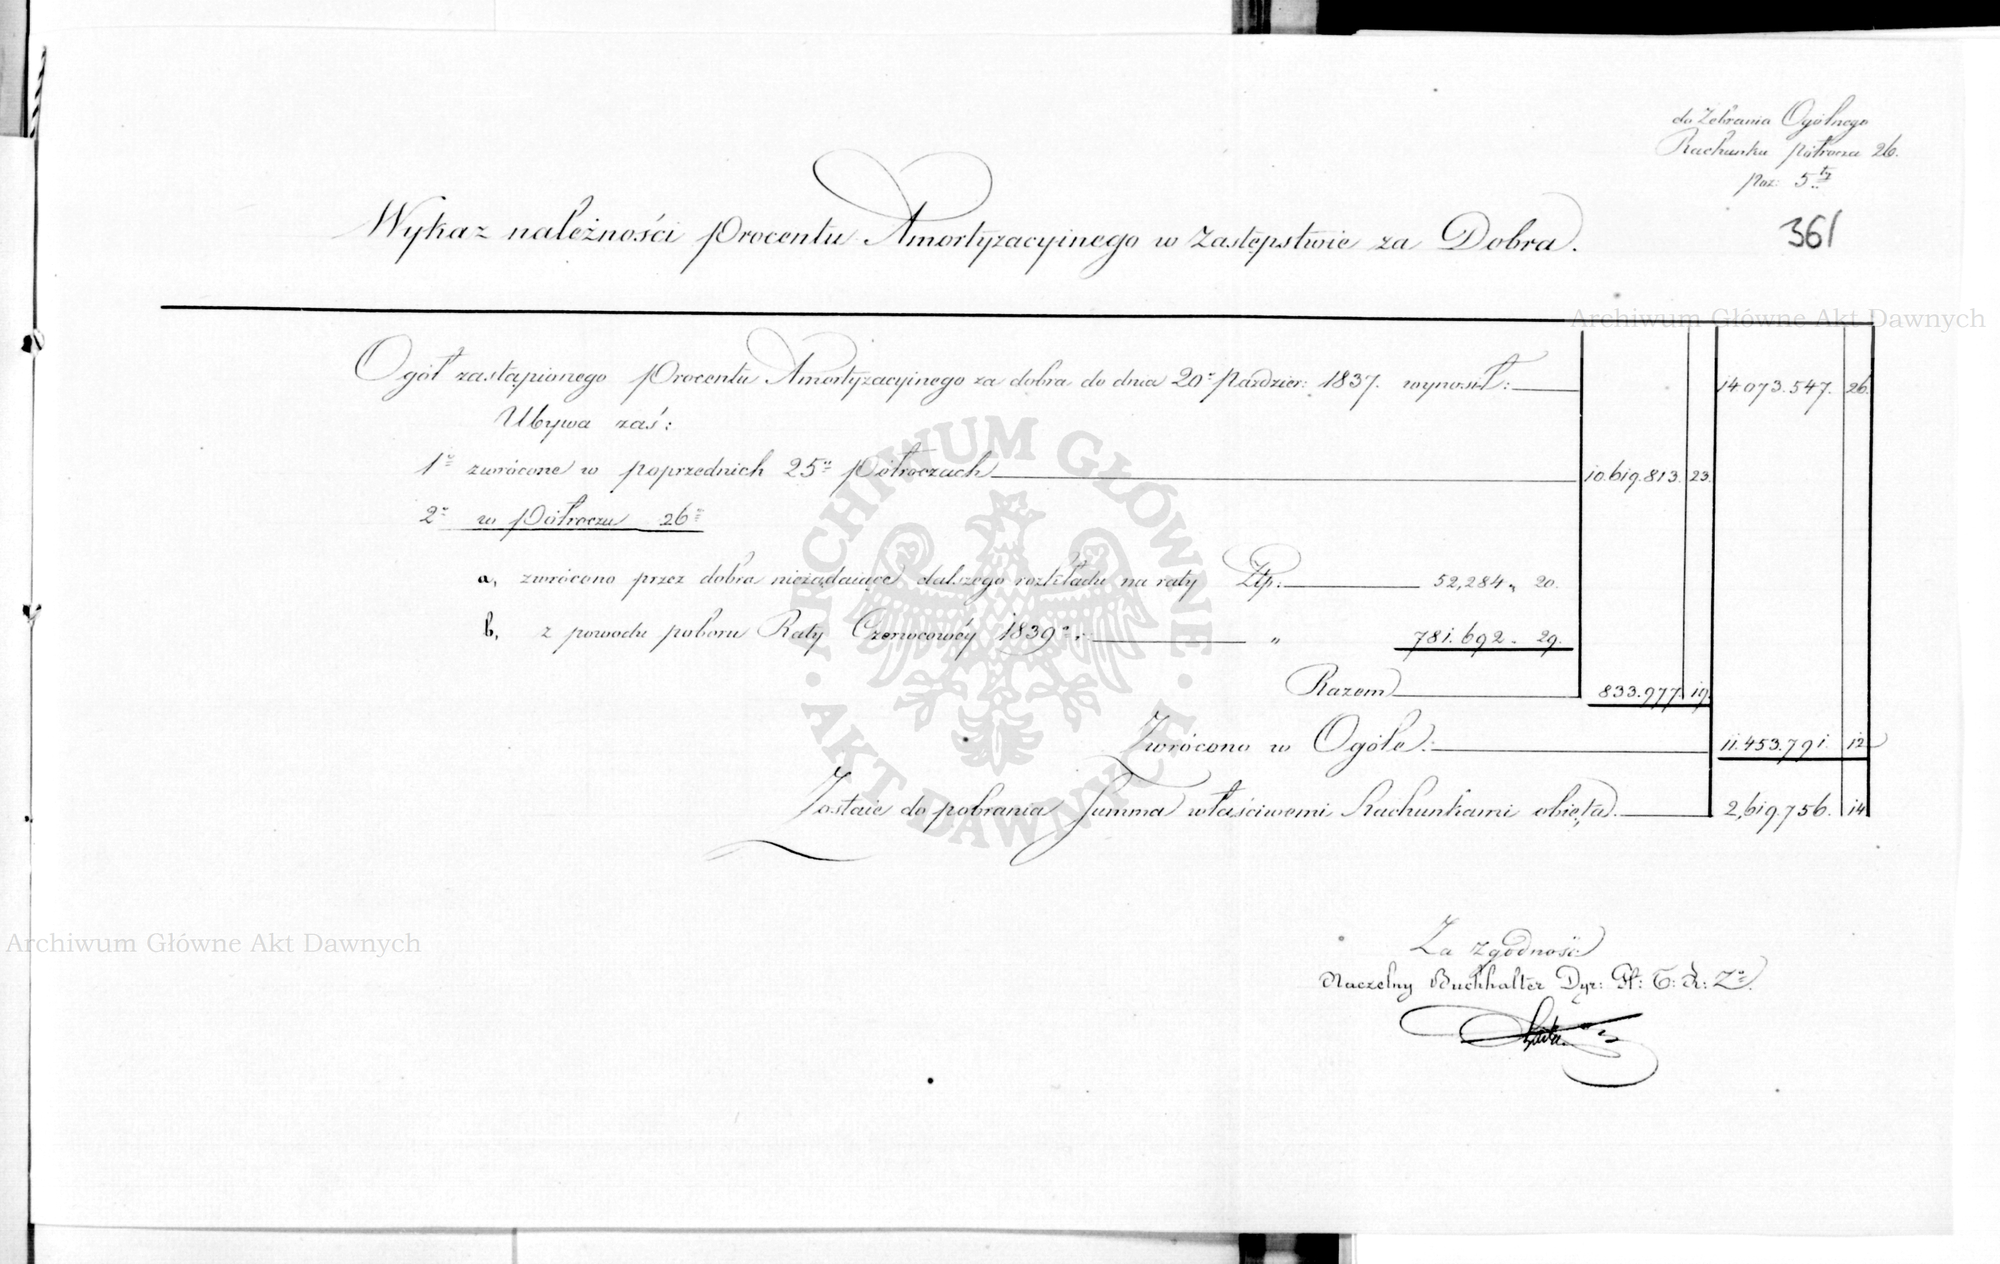 do Zebrania Ogólnego
Rachunku Półrocza 26.
poz: 5.
361
Wykaz należności Procentu Amortyzacyinego w zastępstwie za Dobra.
Archiwum Główne Akt Dawnych
Ogół zastąpionego Procentu Amortyzacyinego za dobra do dnia 20º Paździer: 1837. wynosił: 14 073.547. 26
Ubywa zaś:
1º zwrócone w poprzednich 25u Półroczach 10.619.813. 23.
2º w Półroczu 26º
a, zwrócono przez dobra nieżądaiące dalszego rozkładu na raty Złp: 52,284 „ 20.
b, z powodu poboru Raty Czerwcowéy 1839º. „ 781.692 „ 29.
Razem 833.977 19
Zwrócono w Ogóle: 11.453.791. 12
Zostaie do pobrania Summa właściwemi Rachunkami obięta. 2,619,756. 14
ARCHIWUM GŁÓWNE · AKT DAWNYCH ·
Za zgodność
Archiwum Główne Akt Dawnych
Naczelny Buchhalter Dyr: Gł: T: K: Zº.